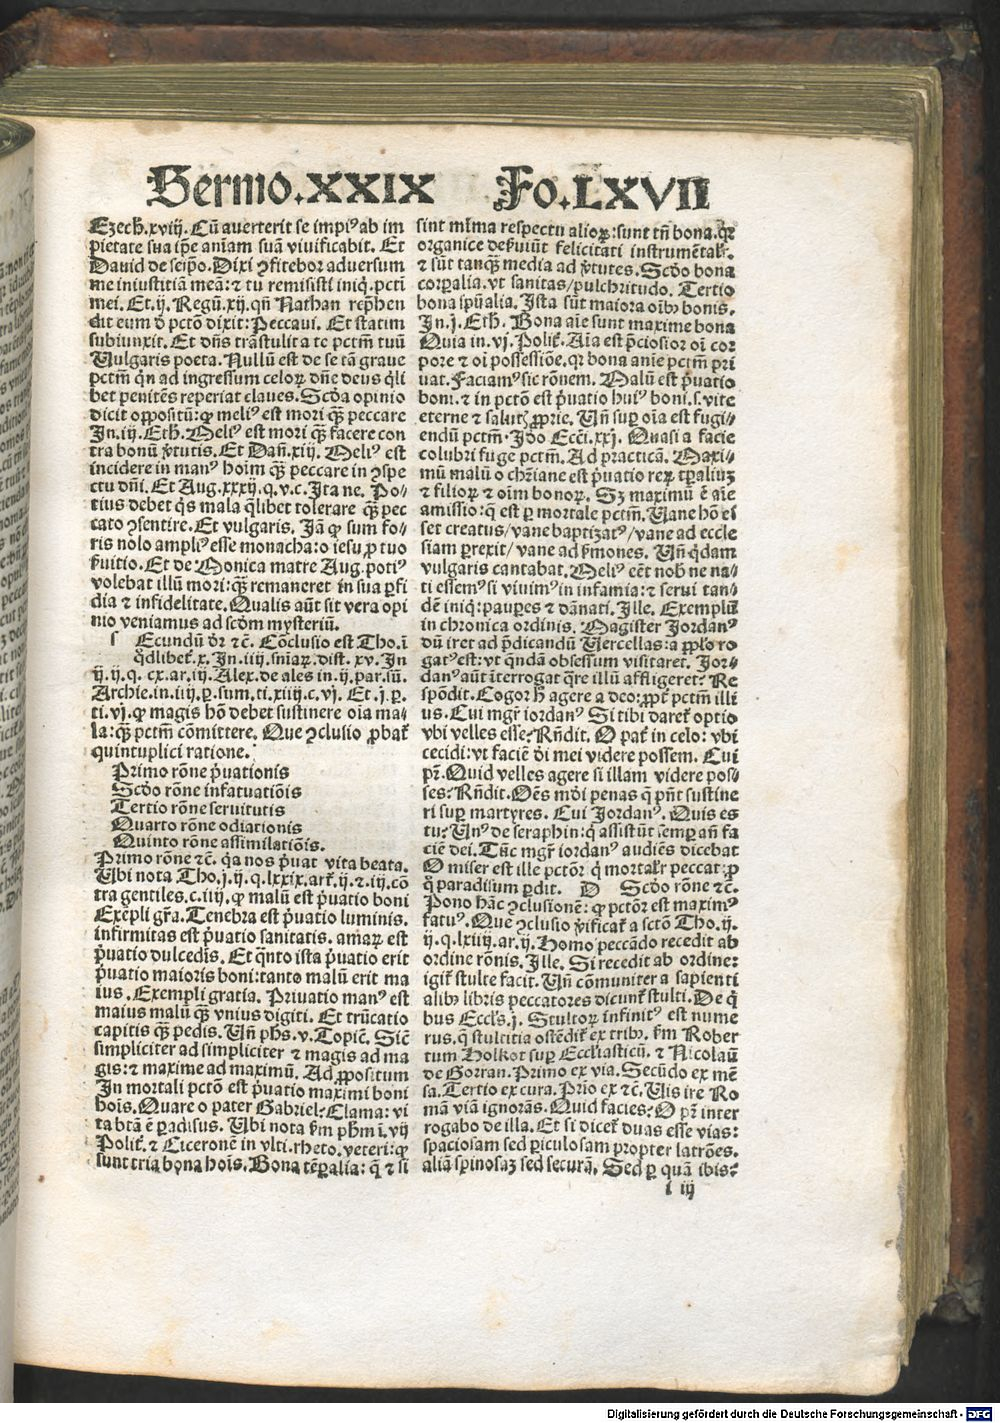 Sermo.XXIX Fo.LXVII
Ezech̄.xviij. Cū auerterit se impiꝰ ab im
pietate sua ip̄e aniam suā viuificabit. Et
Dauid de seip̄o. Dixi ꝯfitebor aduersum
me iniustitia meā: ⁊ tu remisisti iniq̄.pcti
mei. Et.ij. Regū.xij.qn̄ Nathan rep̄hen
dit eum ꝺ̄ pctō dixit: Peccaui. Et statim
subiunxit. Et dn̄s trāstulit a te pctm̄ tuū
Vulgaris poeta. Nullū est de se tā graue
pctm̄ q̄n ad ingressum celoꝝ dn̄e deus q̄li
bet penitēs reperiat claues. Scd̄a opinio
dicit oppositū: ꝙ meliꝰ est mori qꝫ̄ peccare
Jn.iij. Eth̄. Meliꝰ est mori qꝫ̄ facere con
tra bonū v̓tutis. Et Dan̄.xiij. Meliꝰ est
incidere in manꝰ hoim̄ qꝫ̄ peccare in ꝯspe
ctu dn̄i. Et Aug.xxxij.q.v.c. Jta ne. Po⸗
tius debet q̄s mala q̄libet tolerare qꝫ̄ pec
cato ꝯsentire. Et vulgaris. Jā ꝙ sum fo⸗
ris nolo ampliꝰ esse monacha: o iesu ꝓ tuo
ẜuitio. Et de Monica matre Aug. potiꝰ
volebat illū mori: qꝫ̄ remaneret in sua ꝑfi
dia ⁊ infidelitate. Qualis aūt sit vera opi
nio veniamus ad scd̄m mysteriū.
s Ecundū ꝺr̄ ⁊c̄. Cōclusio est Tho.ī
q̄dlibet̄.x. Jn.iiij.sniaꝝ.dist. xv. Jn
ij.ij.q. cx.ar.iij. Alex.de ales in.ij.par.sū.
Archie.in.iij.ꝑ.sum.ti.xiiij.c.vj. Et.j.ꝑ.
ti.vj.ꝙ magis hō debet sustinere oīa ma⸗
la: qꝫ̄ pctm̄ cōmittere. Que ꝯclusio ꝓbat̄
quintuplici ratione.
Primo rōne p̓uationis
Scd̄o rōne infatuatiōis
Tertio rōne seruitutis
Quarto rōne odiationis
Quinto rōne assimilatiōis.
Primo rōne ⁊c̄. q̓a nos p̓uat vita beata.
Vbi nota Tho.j.ij.q.lxxix.art̄.ij.⁊.iij.cō
tra gentiles.c.iiij.ꝙ malū est p̓uatio boni
Exēpli gr̄a. Tenebra est p̓uatio luminis.
infirmitas est p̓uatio sanitatis. amaꝝ est
p̓uatio dulcedīs. Et q̄nto ista p̓uatio erit
p̓uatio maioris boni: tanto malū erit ma
ius. Exempli gratia. Priuatio manꝰ est
maius malū qꝫ̄ vnius digiti. Et trūcatio
capitis qꝫ̄ pedis. Vn̄ phs̄.v. Topic̄. Sic̄
simpliciter ad simpliciter ⁊ magis ad ma
gis: ⁊ maxime ad maximū. Ad ꝓpositum
Jn mortali pctō est p̓uatio maximi boni
hoīs. Quare o pater Gabriel? Clama: vi
ta btā ē ꝑadisus. Vbi nota ẜm phm̄ ī.vij
Polit̄. ⁊ Ciceronē in vlti.rheto.veteri: ꝙ
sunt tria bona hoīs. Bona tēꝑalia: q̄ ⁊ si
sint mīma respectu alioꝝ: sunt tn̄ bona. qꝛ
organice deẜuiūt felicitati instrumētalr̄.
⁊ sūt tanqꝫ̄ media ad v̓tutes. Scd̄o bona
corꝑalia. vt sanitas/pulchritudo. Tertio
bona spūalia. Jsta sūt maiora oībꝰ bonis.
Jn.j. Eth̄. Bona aīe sunt maxime bona
Quia in.vj. Polit̄. Aīa est p̓ciosior oī cor
pore ⁊ oi possessiōe. qꝛ bona anie pctm̄ pri
uat. Faciamꝰ sic rōnem. Malū est p̓uatio
boni. ⁊ in pctō est p̓uatio huiꝰ boni.s.vite
eterne ⁊ salutꝭ ꝓprie. Vn̄ suꝑ oīa est fugi⸗
endū pctm̄. Jd̄o Ecci.xxj. Quasi a facie
colubri fuge pctm̄. Ad practicā. Maxi⸗
mū malū o chr̄iane est p̓uatio reꝝ tꝑaliuꝫ
⁊ filioꝝ ⁊ oīm bonoꝝ. Sꝫ maximū ē aīe
amissio: q̄ est ꝑ mortale pctm̄. Vane hō eēs
set creatus/vane baptizatꝰ/vane ad eccle
siam ꝑrexit/ vane ad ẜmones. Vn̄ q̄dam
vulgaris cantabat. Meliꝰ eēt nob̄ ne na⸗
ti essemꝰ si viuimꝰ in infamia: ⁊ serui tan⸗
dē iniq̄: pauꝑes ⁊ dānati. Jlle. Exemplū
in chronica ordinis. Magister Jordanꝰ
dū iret ad p̓dicandū Vercellas: a pplō ro
gatꝰ est: vt quēdā obsessum visitaret. Jor⸗
danꝰ aūt īterrogat q̄re illū affligeret? Re
spōdit. Cogor h̄ agere a deo: ꝓpt̄ pctm̄ illi
us. Cui mgr̄ iordanꝰ Si tibi daret̄ optio
vbi velles esse? Rn̄dit. O pat̄ in celo: vbi
cecidi: vt faciē ꝺi mei videre possem. Cui
pr̄. Quid velles agere si illam videre pos⸗
ses? Rn̄dit. Oēs mūdi penas q̄ pn̄t sustine
ri suꝑ martyres. Cui Jordanꝰ. Quis es
tu? Vnꝰ de seraphin: q̓ assistūt semꝑ an̄ fa
ciē dei. Tūc mgr̄ iordanꝰ audiēs dicebat
O miser est ille pctōr q̓ mortalr̄ peccat: ꝓ
q̓ paradisum ꝑdit. D Scd̄o rōne ⁊c̄.
Pono hāc ꝯclusionē: ꝙ pctōr est maximꝰ
fatuꝰ. Que ꝯclusio v̓ificat̄ a sctō Tho.ij.
ij.q.lxiiij.ar.ij. Homo peccādo recedit ab
ordine rōnis. Jlle. Si recedit ab ordine:
igit̄ stulte facit. Vn̄ cōmuniter a sapienti
alibꝰ libris peccatores dicunt̄ stulti. De q̓
bus Eccls̄.j. Stultoꝝ infinitꝰ est nume
rus. q̄ stultitia ostēdit̄ ex tribꝰ. ẜm Rober
tum Holkot suꝑ Eccl̄iasticū. ⁊ Nicolaū
de Gorran. Primo ex via. Secūdo ex mē
sa. Tertio ex cura. Prīo ex ⁊c̄. Vis ire Ro
mā viā ignorās. Quid facies? O pr̄ inter
rogabo de illa. Et si dicet̄ duas esse vias:
spaciosam sed ꝑiculosam propter latrōes.
aliā spinosaꝫ sed securā. Sed ꝑ quā ibis?
l iij
Digitalisierung gefördert durch die Deutsche Forschungsgemeinschaft - DFG